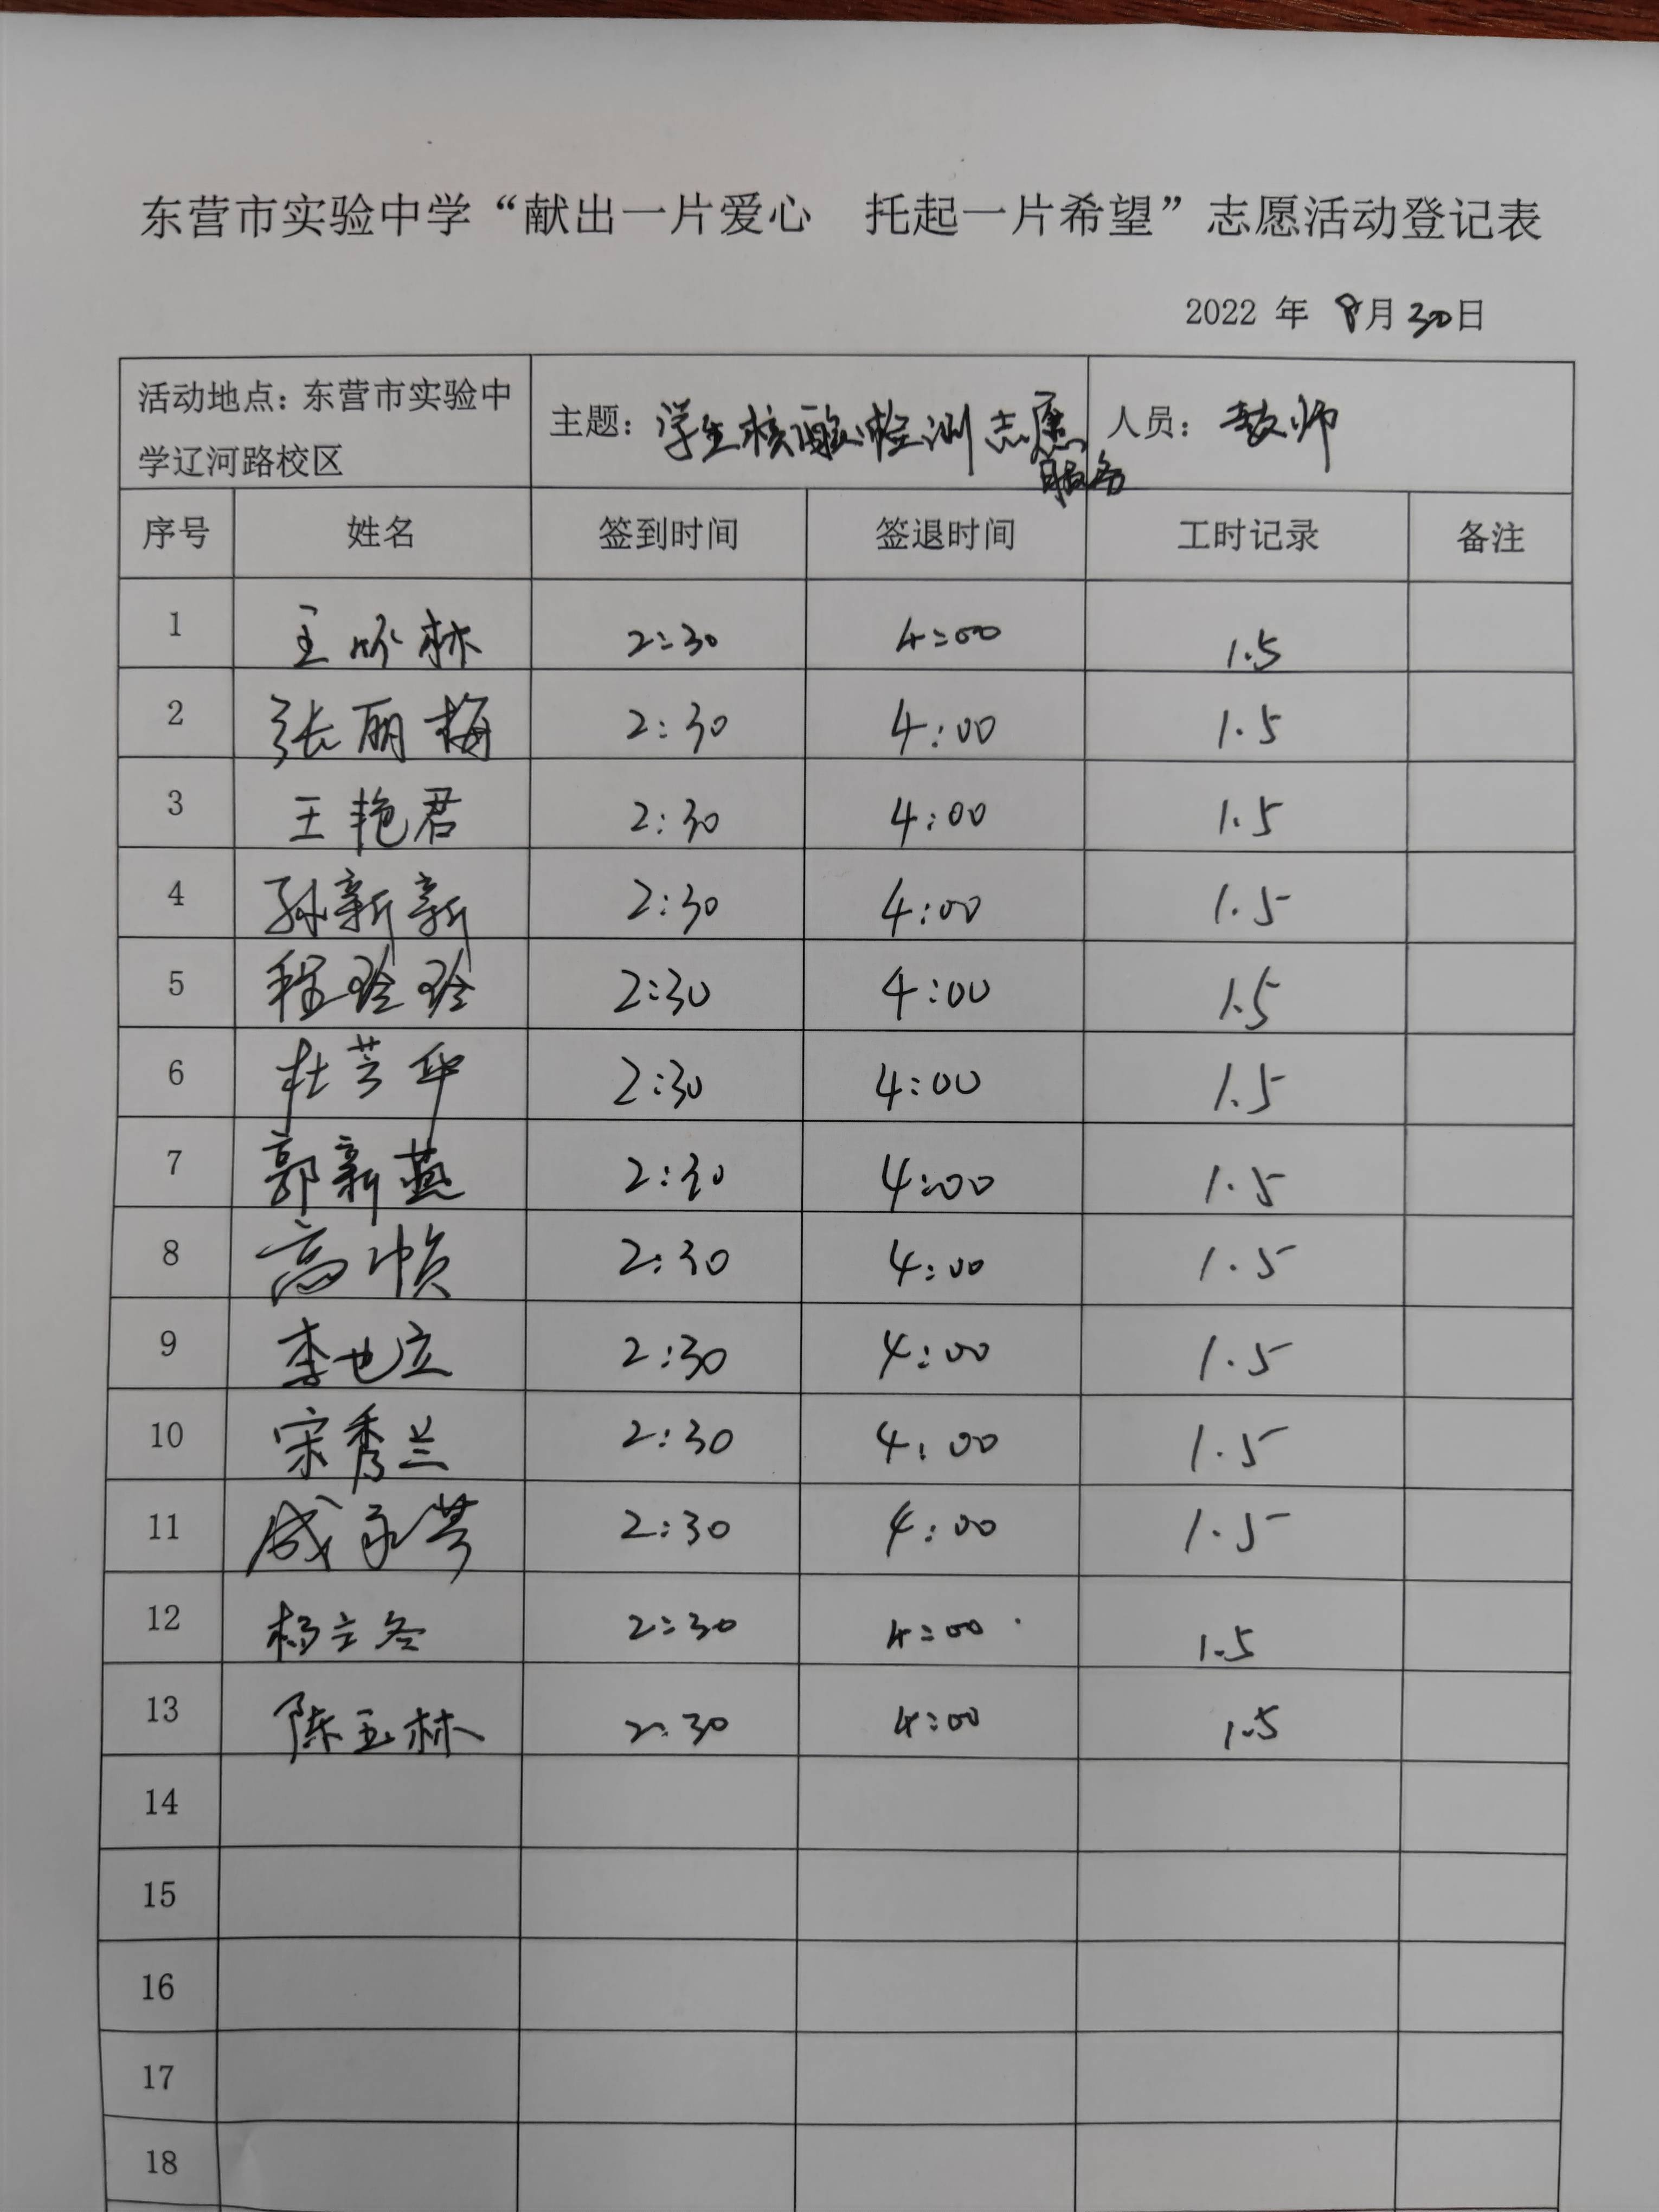 东营市实验中学“献出一片爱心　托起一片希望”志愿活动登记表
2022 年 8月30日
活动地点：东营市实验中学辽河路校区 主题：学生核酸检测志愿服务 人员：教师
序号 姓名 签到时间 签退时间 工时记录 备注
1 王 林 2:30 4:00 1.5
2 张丽梅 2:30 4:00 1.5
3 王艳君 2:30 4:00 1.5
4 孙新新 2:30 4:00 1.5
5 程玲玲 2:30 4:00 1.5
6 杜芳华 2:30 4:00 1.5
7 郭新燕 2:30 4:00 1.5
8 高帧 2:30 4:00 1.5
9 李也立 2:30 4:00 1.5
10 宋秀兰 2:30 4:00 1.5
11 成永 2:30 4:00 1.5
12 杨立冬 2:30 4:00 1.5
13 陈玉林 2:30 4:00 1.5
14
15
16
17
18